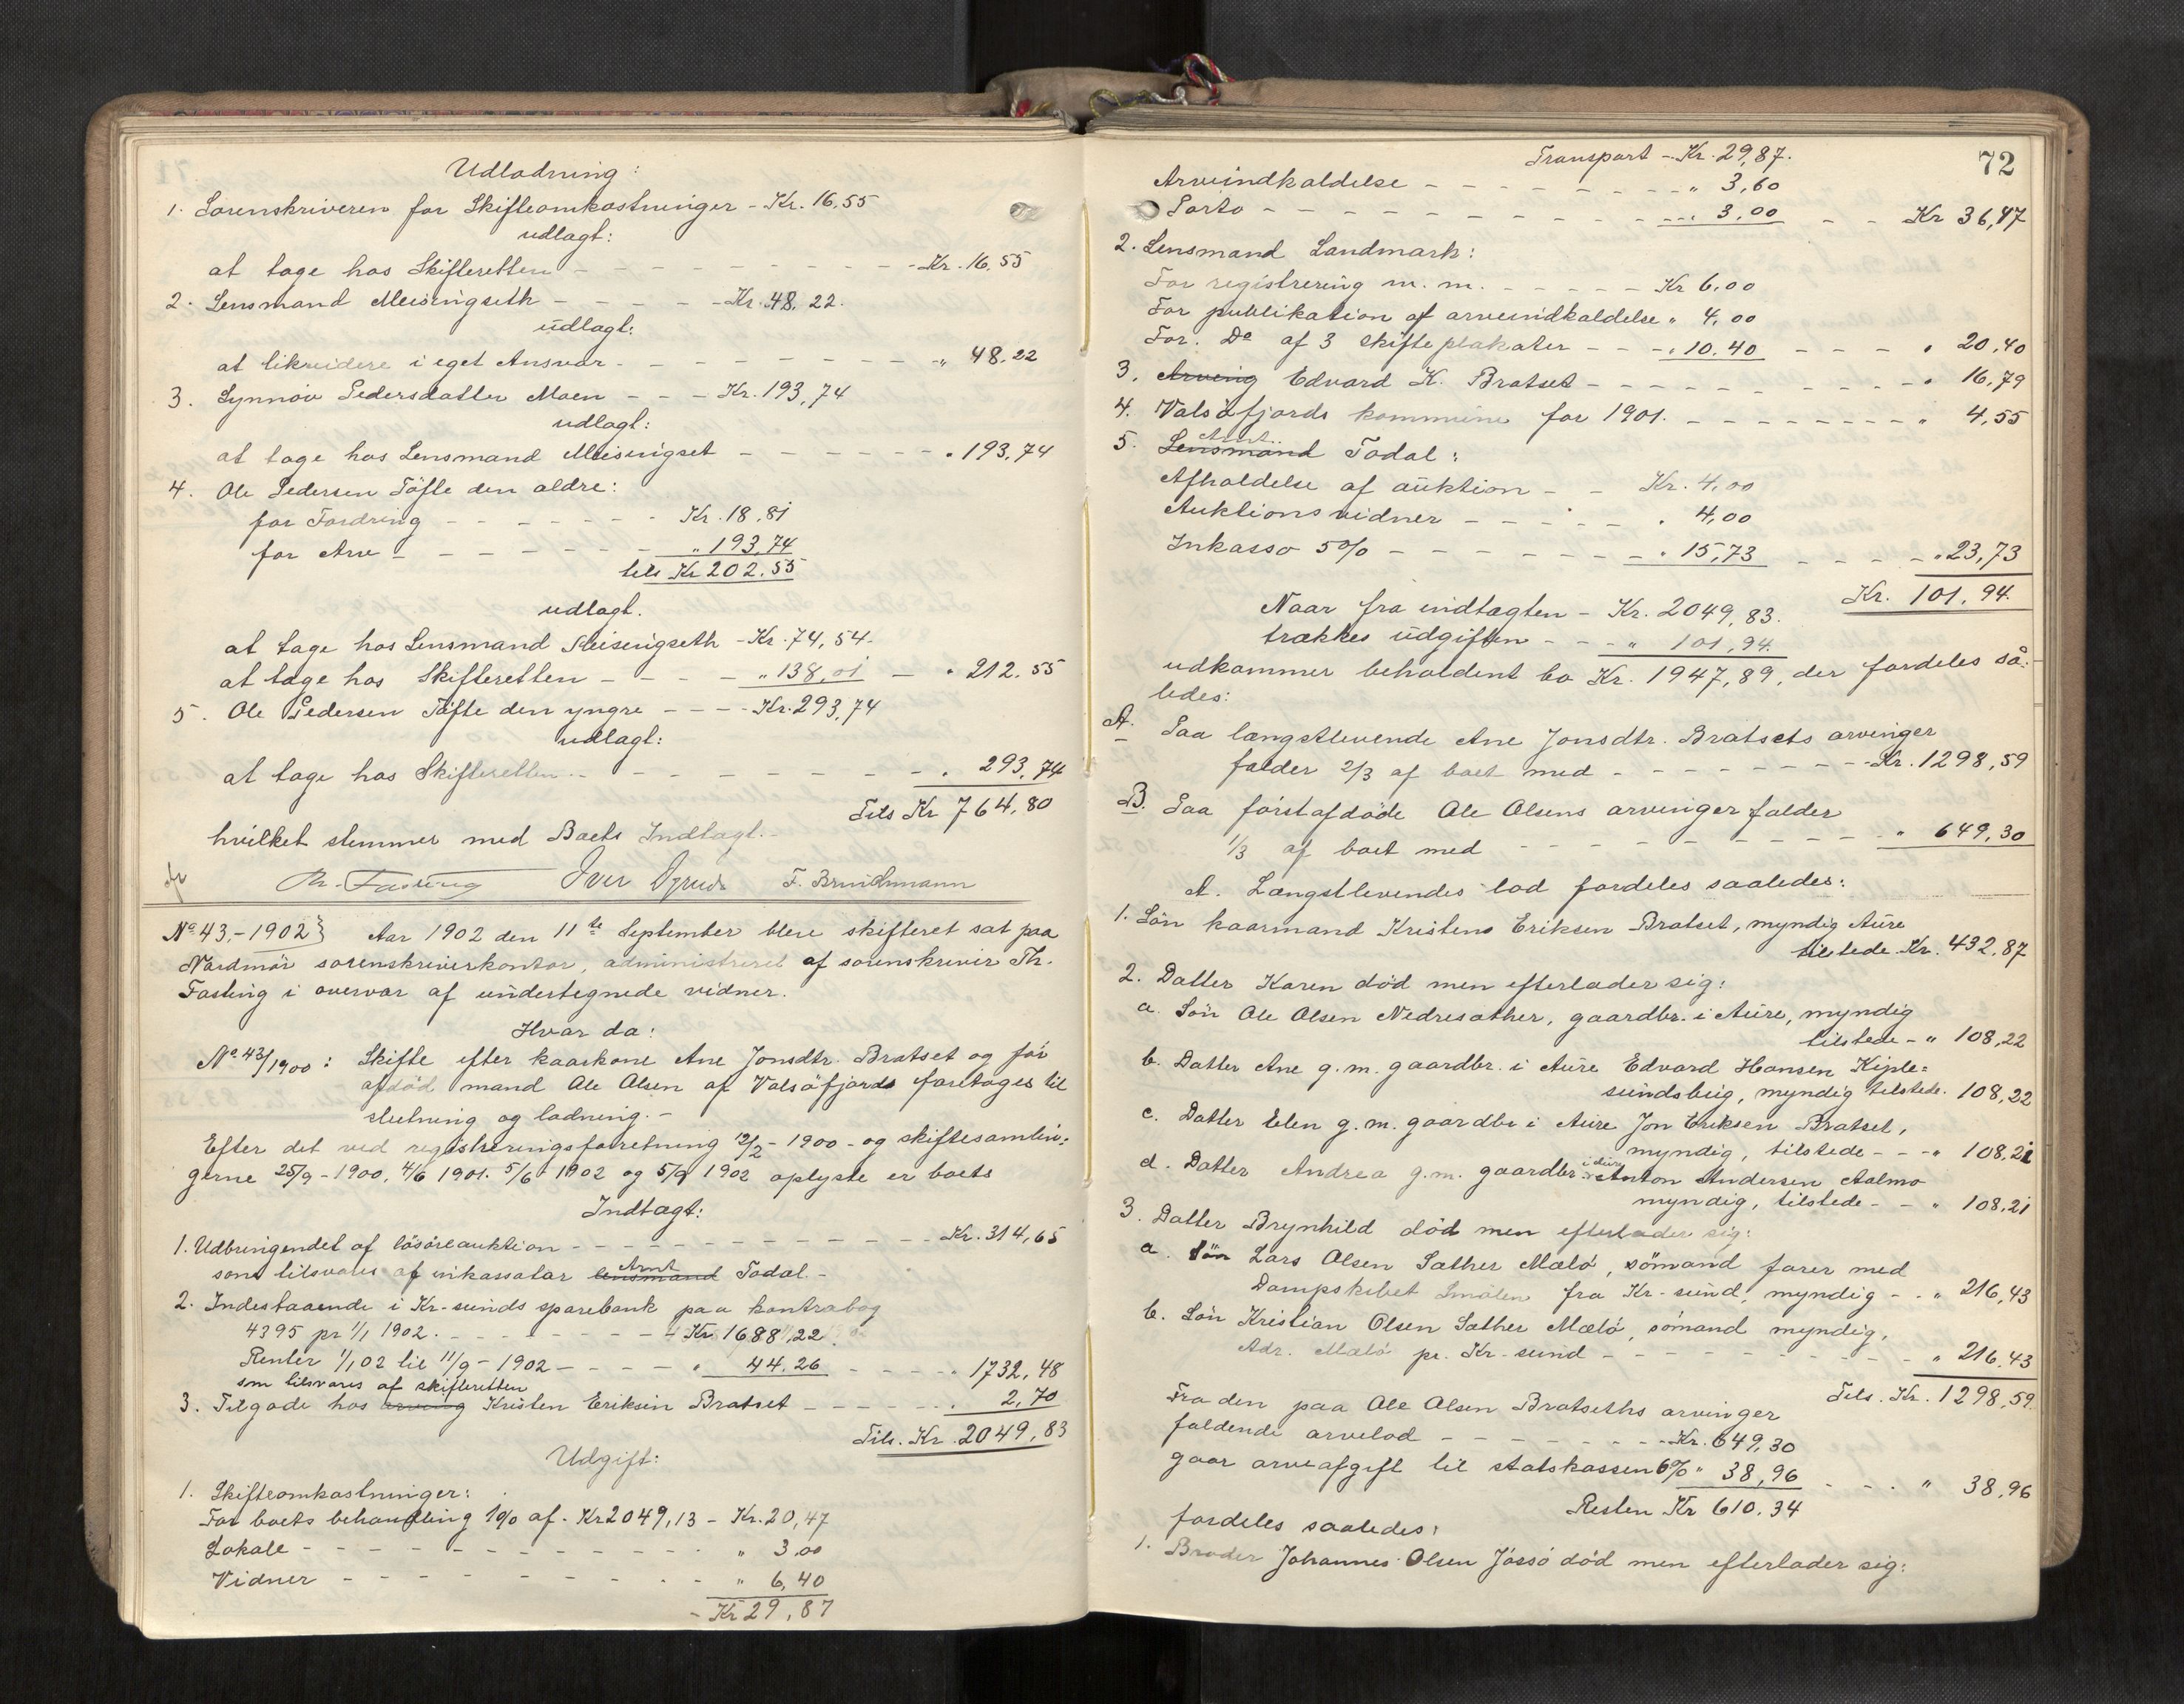 Udlodning:
1. Sorenskriveren for Skifteomkostninger - Kr. 16,55
udlagt:
at tage hos Skifteretten - - - Kr. 16,55
2. Lensmand Meisingseth - - - Kr. 48.22.
udlagt:
at likvidere i eget Ansvar - - - " 48.22
3. Synnöv Pedersdatter Moen - - - Kr. 193,74
udlagt:
at tage hos Lensmand Meisingset - - - " 193,74
4. Ole Pedersen Töfte den ældre:
for Fordring - - - Kr. 18.81
for Arv - - - " 193,74
tils Kr 202.55
udlagt.
at tage hos Lensmand Meisingseth - Kr. 74,54.
at tage hos Skifteretten - - - " 138,01 - " 212.55
5. Ole Pedersen Töfte den yngre - - - Kr. 293,74
udlagt:
at tage hos Skifteretten - - - " 293,74
Tils Kr 764,80
hvilket stemmer med Boets Indtægt. -
Th. Fasting Iver F. Bruichmann
No 43.-1902} Aar 1902 den 11te September blev skifteret sat paa
Nordmör sorenskriverkontor, administreret af sorenskriver Th.
Fasting i overvær af undertegnede vidner.
Hvor da:
No. 43/1900: Skifte efter kaarkone Ane Jonsdtr. Bratset og før
afdöd mand Ole Olsen af Valsöfjord foretages til
slutning og lodning. -
Efter det ved registreringsforretning 12/2 - 1900 - og skiftesamlin=
gerne 25/9 - 1900, 4/6 1901. 5/6 1902 og 5/9 1902 oplyste er boets
Indtægt:
1. Udbringendet af lösöreauktion - - - Kr. 314,65
som tilsvares af inkassator lensmand Arnt Todal. -
2. Indestaaende i Kr-sunds sparebank paa kontrabog
4395 pr 1/1 1902. - - - Kr 1688,22
Renter 1/1 02 til 11/9 - 1902 - - - " 44.26 - - - " 1732,48
som tilsvares af skifteretten
3. Tilgode hos arving Kristen Eriksen Bratset - - - " 2,70
Tils. Kr. 2049,83
Udgift:
1. Skifteomkostninger:
For boets behandling 1% af. Kr 2049,13 - Kr. 20,47
Lokale - - - " 3,00
Vidner - - - " 6,40
- Kr 29,87
72
Transport - Kr. 29,87.
Arveindkaldelse - - - " 3,60
Porto - - - " 3,00 - - Kr 36,47
2. Lensmand Landmark:
For registrering m. m. - - - Kr 6,00
For publikation af arveindkaldelse " 4,00
For. Do af 3 skifteplakater - - - " 10.40 - - - " 20,40
3. Arving Edvard K. Bratset - - - " 16,79
4. Valsöfjords kommune for 1901. - - - " 4,55
5. Lensmand Arnt Todal:
Afholdelse af auktion - - Kr. 4,00
Auktionsvidner - - - " 4,00
Inkasso 5% - - - " 15,73 - - - " 23,73
Kr. 101,94.
Naar fra indtægten - Kr. 2049,83.
trækkes udgiften - - - " 101,94.
udkommer beholdent bo Kr. 1947,89, der fordeles så=
ledes:
A. Paa længstlevende Ane Jonsdtr. Bratsets arvinger
falder 2/3 af boet med - - - Kr. 1298,59
B. Paa förstafdöde Ole Olsens arvinger falder
1/3 af boet med - - - " 649,30
A. Længstlevendes lod fordeles saaledes:
1. Sön kaarmand Kristen Eriksen Bratset, myndig Aure
tilstede Kr. 432,87
2. Datter Karen död men efterlader sig:
a. Sön Ole Olsen Nedresæther, gaardbr. i Aure, myndig
tilstede - " 108,22
b. Datter Ane g. m. gaardbr. i Aure Edvard Hansen Kiple=
sundsbug, myndig tilstede. 108,22
c. Datter Elen g. m. gaardbr i Aure Jon Eriksen Bratset,
myndig, tilstede - - - " 108,21
d. Datter Andrea g. m. gaardbr. i Aure Anton Andersen Aalmo
myndig, tilstede - - " 108,21
3. Datter Brynhild död men efterlader sig:
a. Sön Lars Olsen Sæther Mælö, sömand farer med
Dampskibet Smölen fra Kr-sund, myndig - - " 216,43
b. Sön Kristian Olsen Sæther Mælö, sömand myndig,
Adr. Mælö pr. Kr-sund - - - " 216,43
Tils. Kr. 1298,59.
Fra den paa Ole Olsen Bratseths arvinger
faldende arvelod - - - Kr. 649,30
gaar arveafgift til statskassen 6% " 38,96 - - - " 38,96
Resten Kr 610.34
fordeles saaledes:
1. Broder Johannes Olsen Jössö död men efterlader sig: